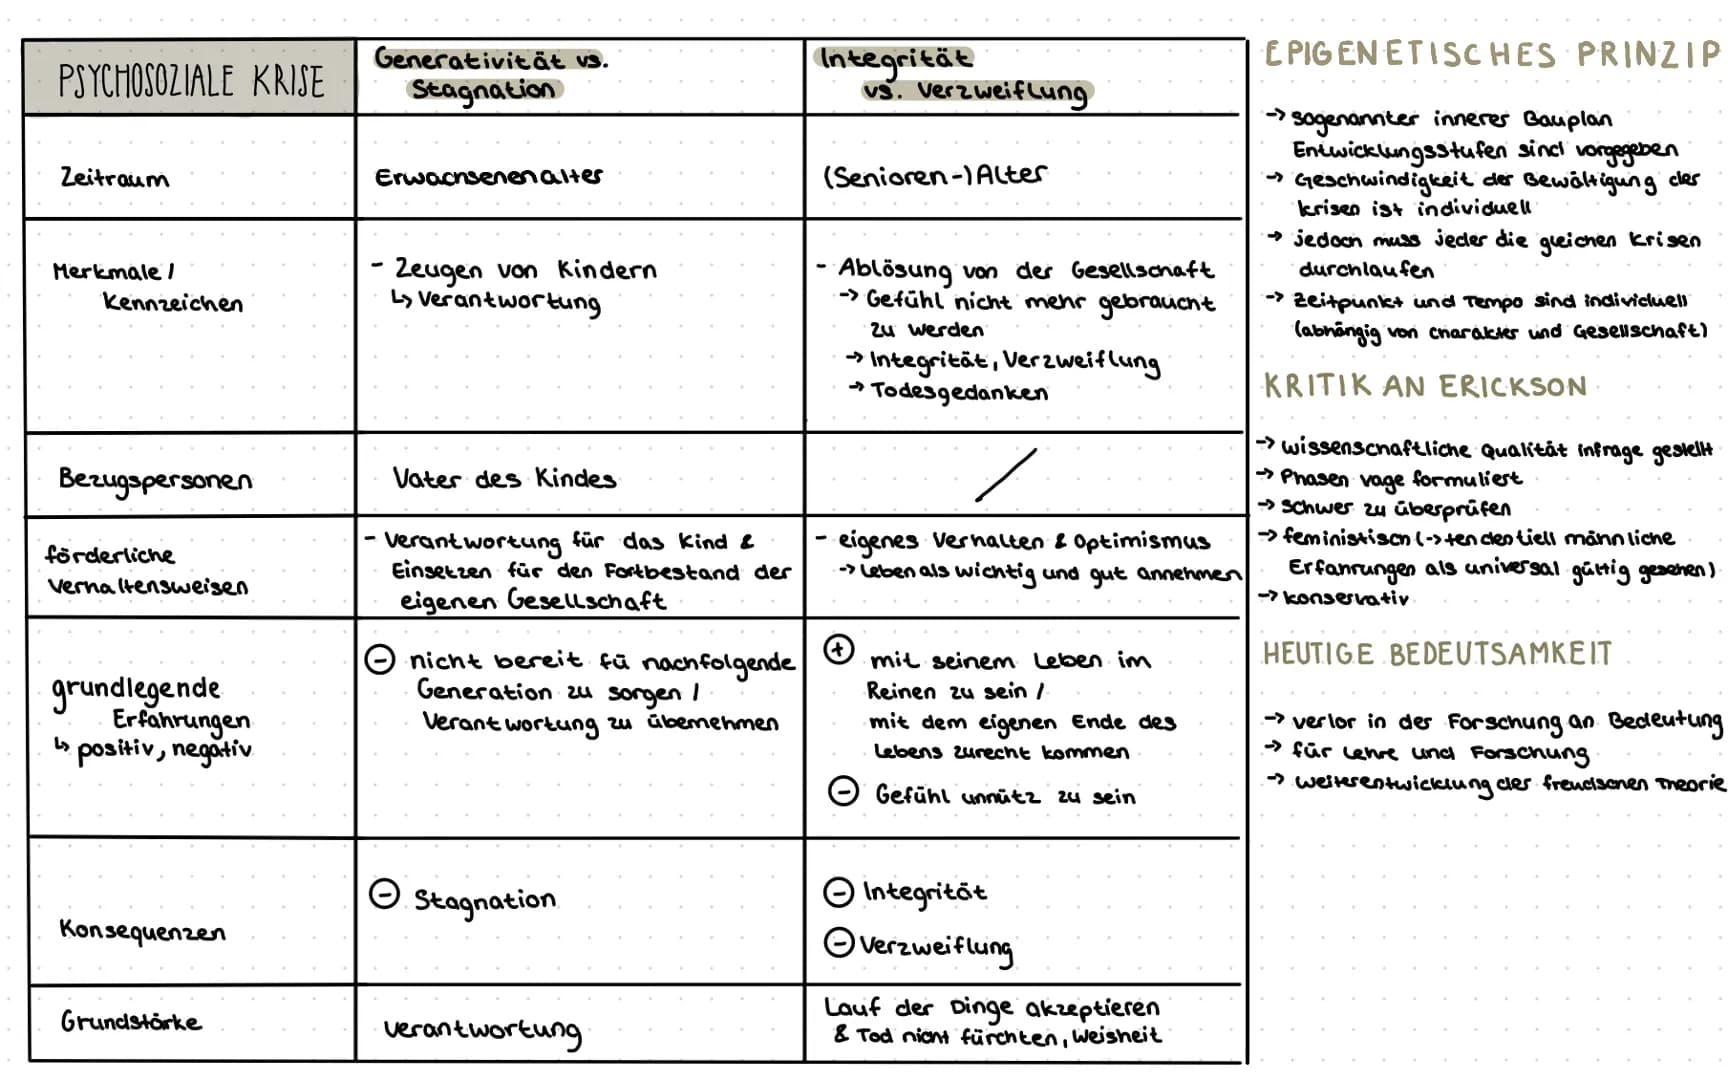 PSYCHOSOZIALE KRISE
Generativität vs.
Stagnation
Integrität
vs. Verzweiflung
Zeitraum
Erwachsenenalter
(Senioren-)Alter
Merkmale /
Kennzeichen
- Zeugen von Kindern
↳ Verantwortung
- Ablösung von der Gesellschaft
→ Gefühl nicht mehr gebraucht
zu werden
→ Integrität, Verzweiflung
→ Todesgedanken
Bezugspersonen
Vater des Kindes
/
förderliche
Verhaltensweisen
- Verantwortung für das Kind &
Einsetzen für den Fortbestand der
eigenen Gesellschaft
- eigenes Verhalten & Optimismus
→ Leben als wichtig und gut annehmen
grundlegende
Erfahrungen
↳ positiv, negativ
⊖ nicht bereit fü nachfolgende
Generation zu sorgen /
Verantwortung zu übernehmen
⊕ mit seinem Leben im
Reinen zu sein /
mit dem eigenen Ende des
Lebens zurecht kommen
⊖ Gefühl unnütz zu sein
Konsequenzen
⊖ Stagnation
⊖ Integrität
⊖ Verzweiflung
Grundstärke
Verantwortung
Lauf der Dinge akzeptieren
& Tod nicht fürchten, Weisheit
EPIGENETISCHES PRINZIP
→ sogenannter innerer Bauplan
Entwicklungsstufen sind vorgegeben
→ Geschwindigkeit der Bewältigung der
Krisen ist individuell
→ jedoch muss jeder die gleichen Krisen
durchlaufen
→ Zeitpunkt und Tempo sind individuell
(abhängig von Charakter und Gesellschaft)
KRITIK AN ERICKSON
→ wissenschaftliche Qualität infrage gestellt
→ Phasen vage formuliert
→ Schwer zu überprüfen
→ feministisch (→ tendentiell männliche
Erfahrungen als universal gültig gesehen)
→ konservativ
HEUTIGE BEDEUTSAMKEIT
→ verlor in der Forschung an Bedeutung
→ für Lehre und Forschung
→ Weiterentwicklung der freudschen Theorie